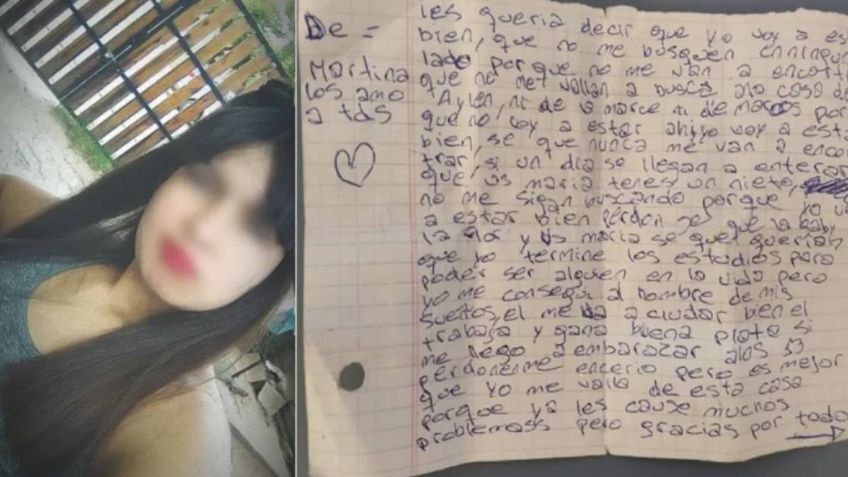 De =
Martina
los amo
a tds
les queria decir que yo voy a es
bien, que no me busquen enningun
lado porque no me van a encott
que no me vallan a busca ala casa de
Aylen, ni de la marce ni de marcos por
que no, voy a estar ahi yo voy a esta
bien, se que nunca me van a encon
trar, si un dia se llegan a enterar
que, vs maria tenes un nieto,
no me sigan buscando porque yo v
a estar bien perdon se que la baby
la flor y vs maria se que querian
que yo termine los estudios para
poder ser alguen en la vida pero
yo me consegui al hombre de mis
sueños, el me va a ciudar bien el
trabaja y gana buena plata si
me llego a embarazar alos 13
perdonenme encerio pero es mejor
que yo me valla de esta casa
porque ya les cause muchos
problemass pero gracias por todo